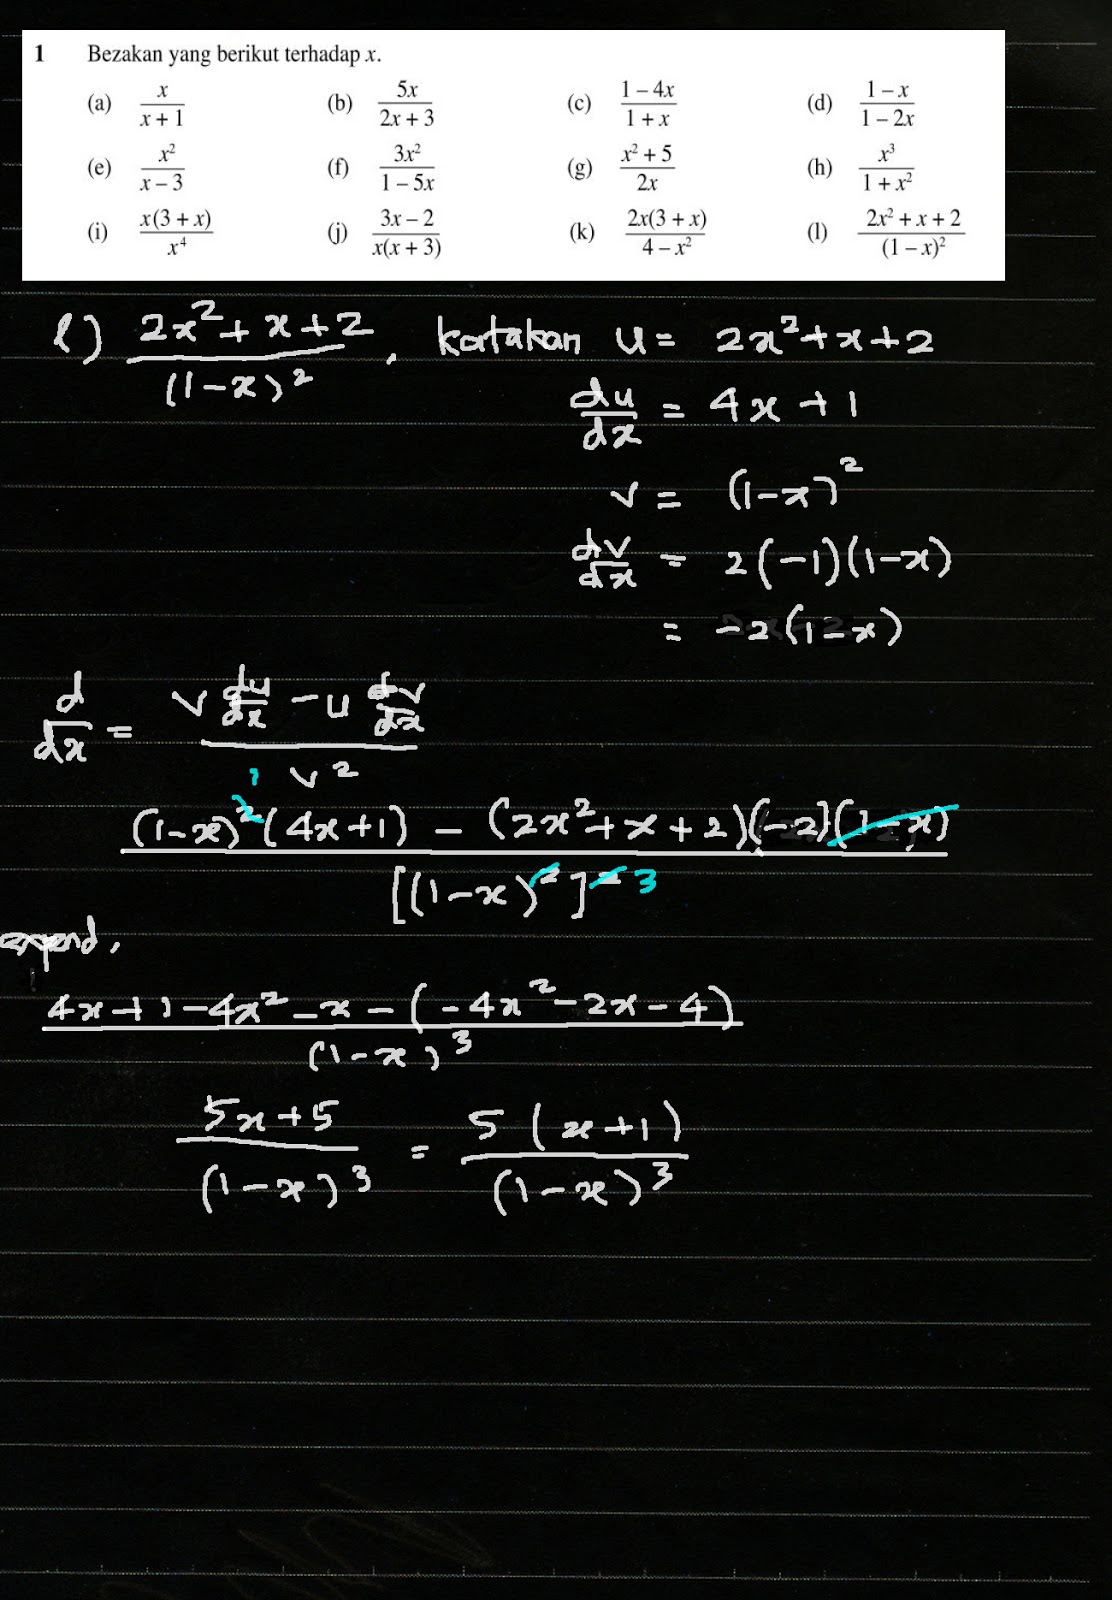 1 Bezakan yang berikut terhadap x.
(a) x/(x + 1) (b) 5x/(2x + 3) (c) (1 – 4x)/(1 + x) (d) (1 – x)/(1 – 2x)
(e) x²/(x – 3) (f) 3x²/(1 – 5x) (g) (x² + 5)/2x (h) x³/(1 + x²)
(i) x(3 + x)/x⁴ (j) (3x – 2)/x(x + 3) (k) 2x(3 + x)/(4 – x²) (l) (2x² + x + 2)/(1 – x)²
l) (2x² + x + 2)/(1-x)² , katakan u = 2x² + x + 2
du/dx = 4x + 1
v = (1-x)²
dv/dx = 2(-1)(1-x)
= -2(1-x)
d/dx = (v du/dx - u dv/dx)/v²
1
(1-x)²(4x+1) - (2x²+x+2)(-2)(1-x)
[(1-x)²]² 3
expend,
4x+1-4x²-x-(-4x²-2x-4)
(1-x)³
(5x+5)/(1-x)³ = 5(x+1)/(1-x)³